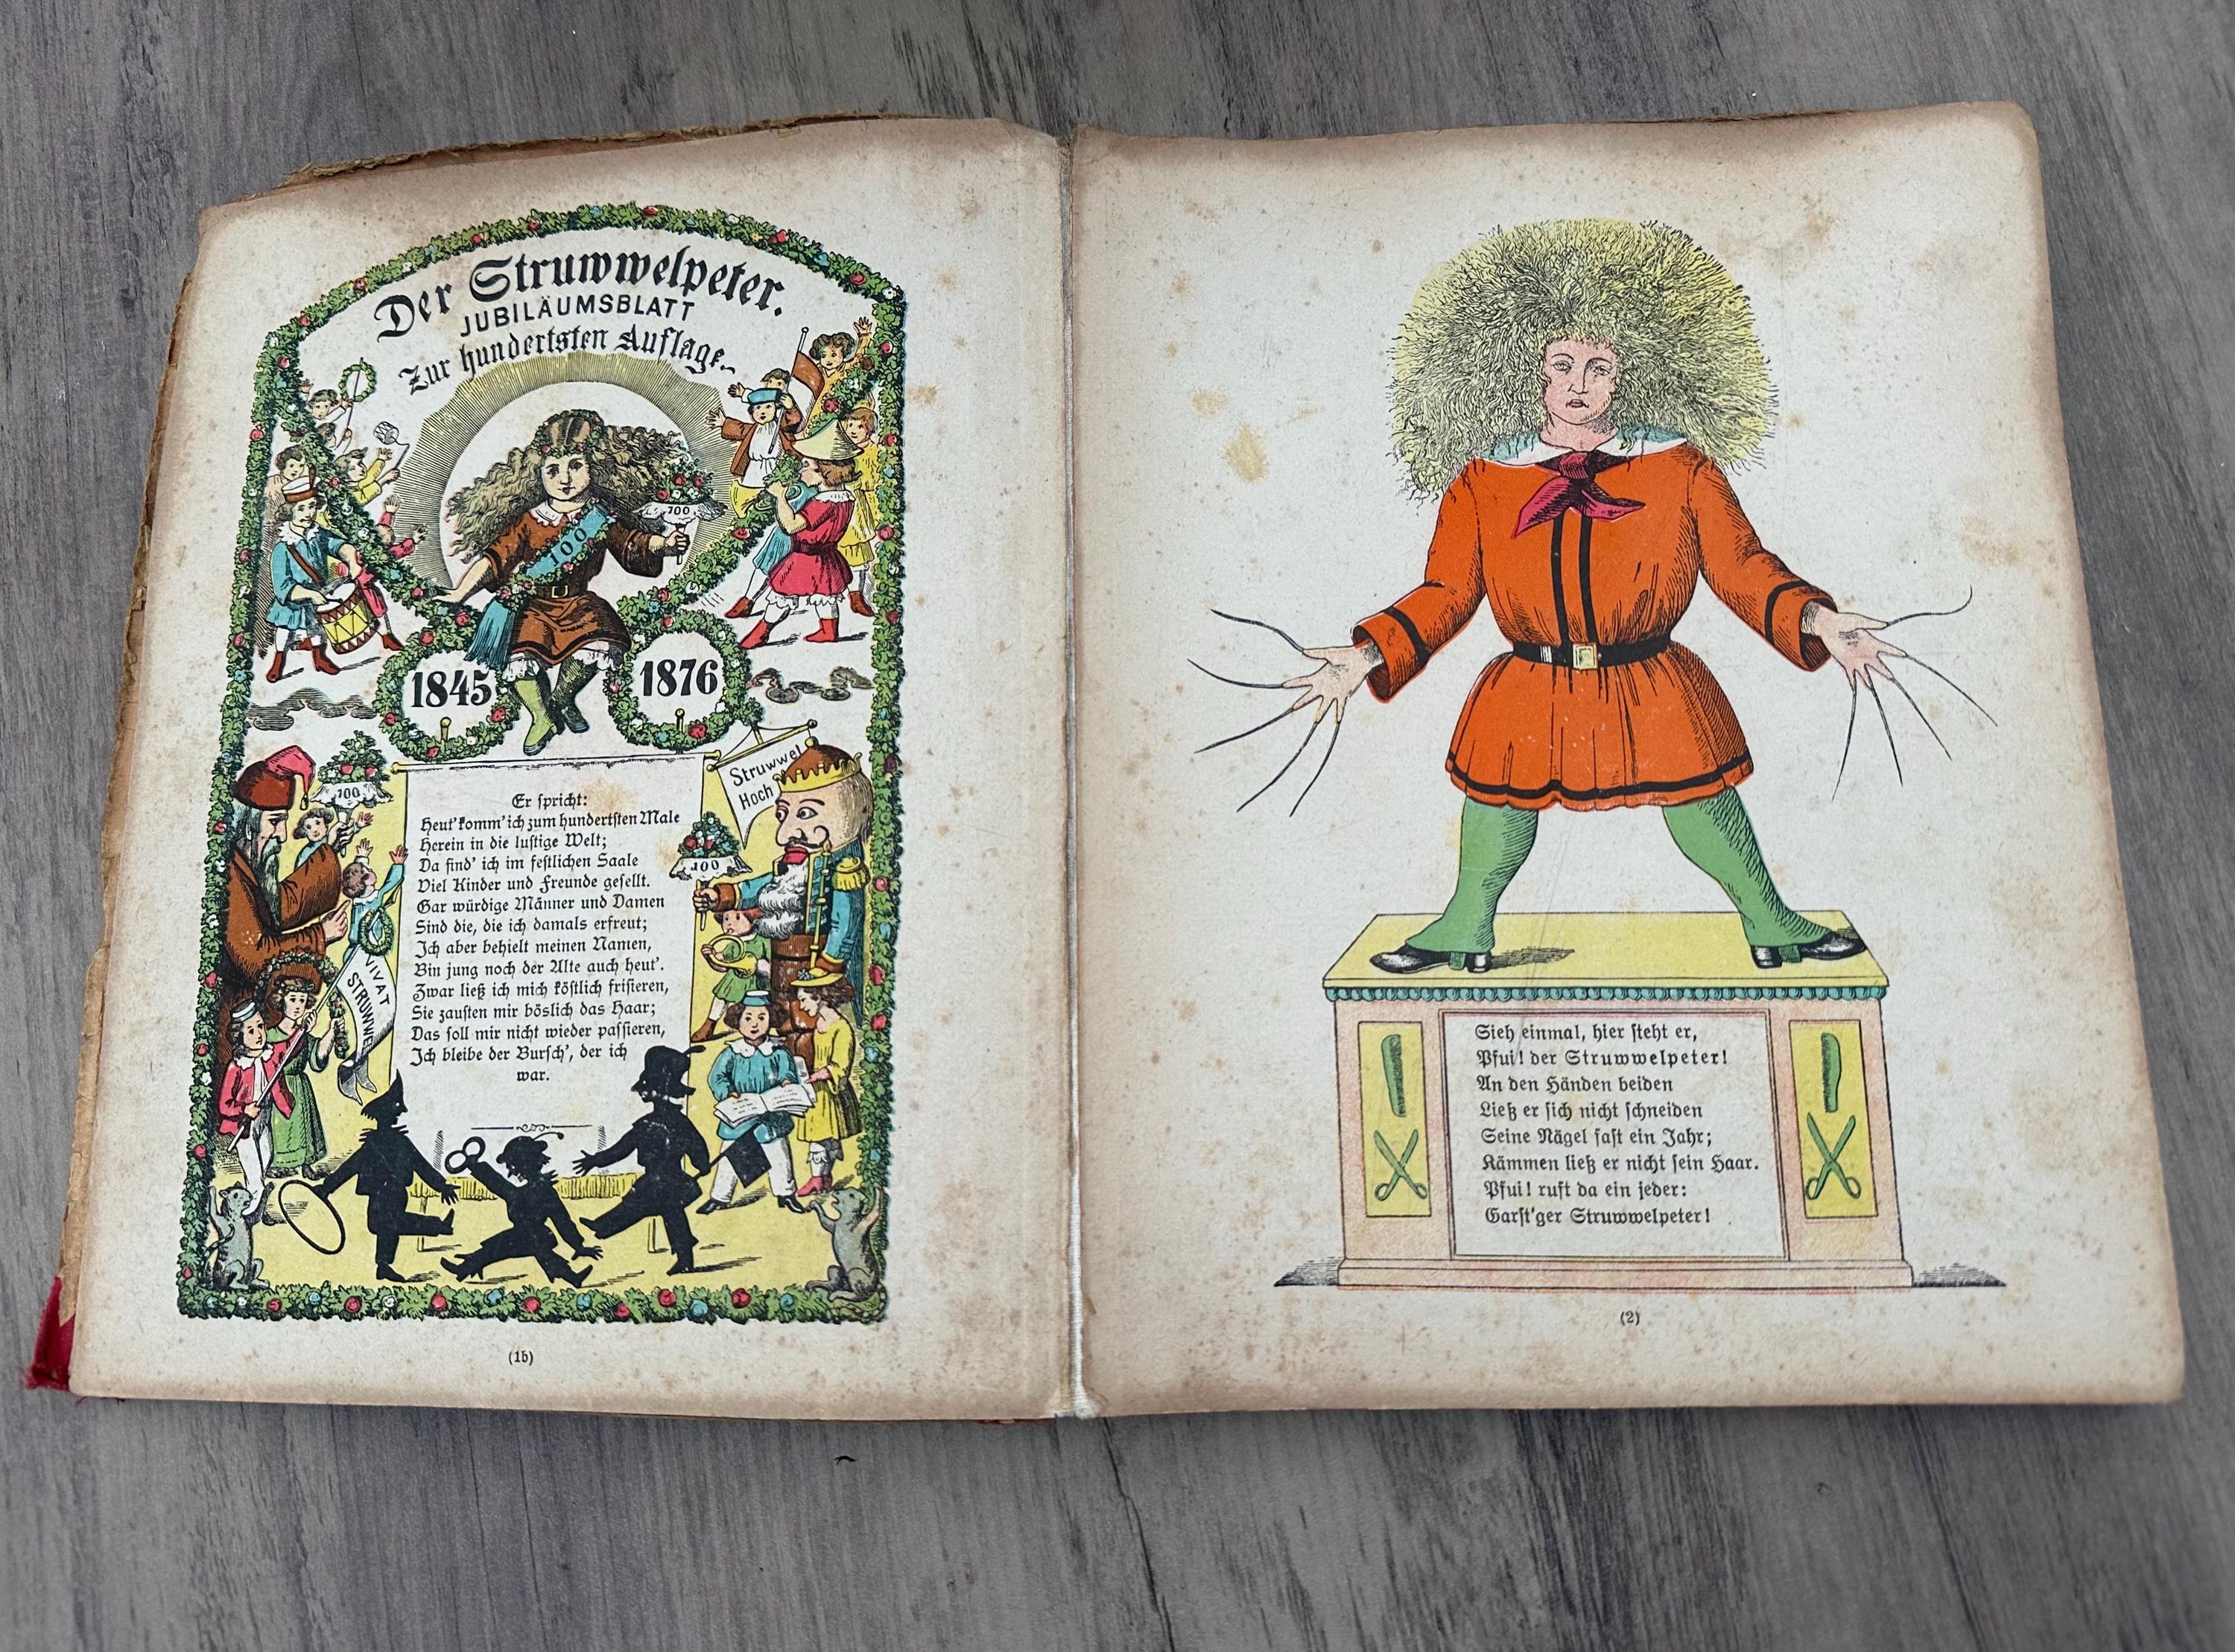 Der Struwwelpeter.
JUBILÄUMSBLATT
Zur hundertsten Auflage.
100
100
1845
1876
100
Struwwel
Hoch
100
VIVAT
STRUWWEL
Er spricht:
Heut' komm' ich zum hundertsten Male
Herein in die lustige Welt;
Da find' ich im festlichen Saale
Viel Kinder und Freunde gesellt.
Gar würdige Männer und Damen
Sind die, die ich damals erfreut;
Ich aber behielt meinen Namen,
Bin jung noch der Alte auch heut'.
Zwar ließ ich mich köstlich frisieren,
Sie zausten mir böslich das Haar;
Das soll mir nicht wieder passieren,
Ich bleibe der Bursch', der ich
war.
(1b)
Sieh einmal, hier steht er,
Pfui! der Struwwelpeter!
An den Händen beiden
Ließ er sich nicht schneiden
Seine Nägel fast ein Jahr;
Kämmen ließ er nicht sein Haar.
Pfui! ruft da ein jeder:
Garst'ger Struwwelpeter!
(2)